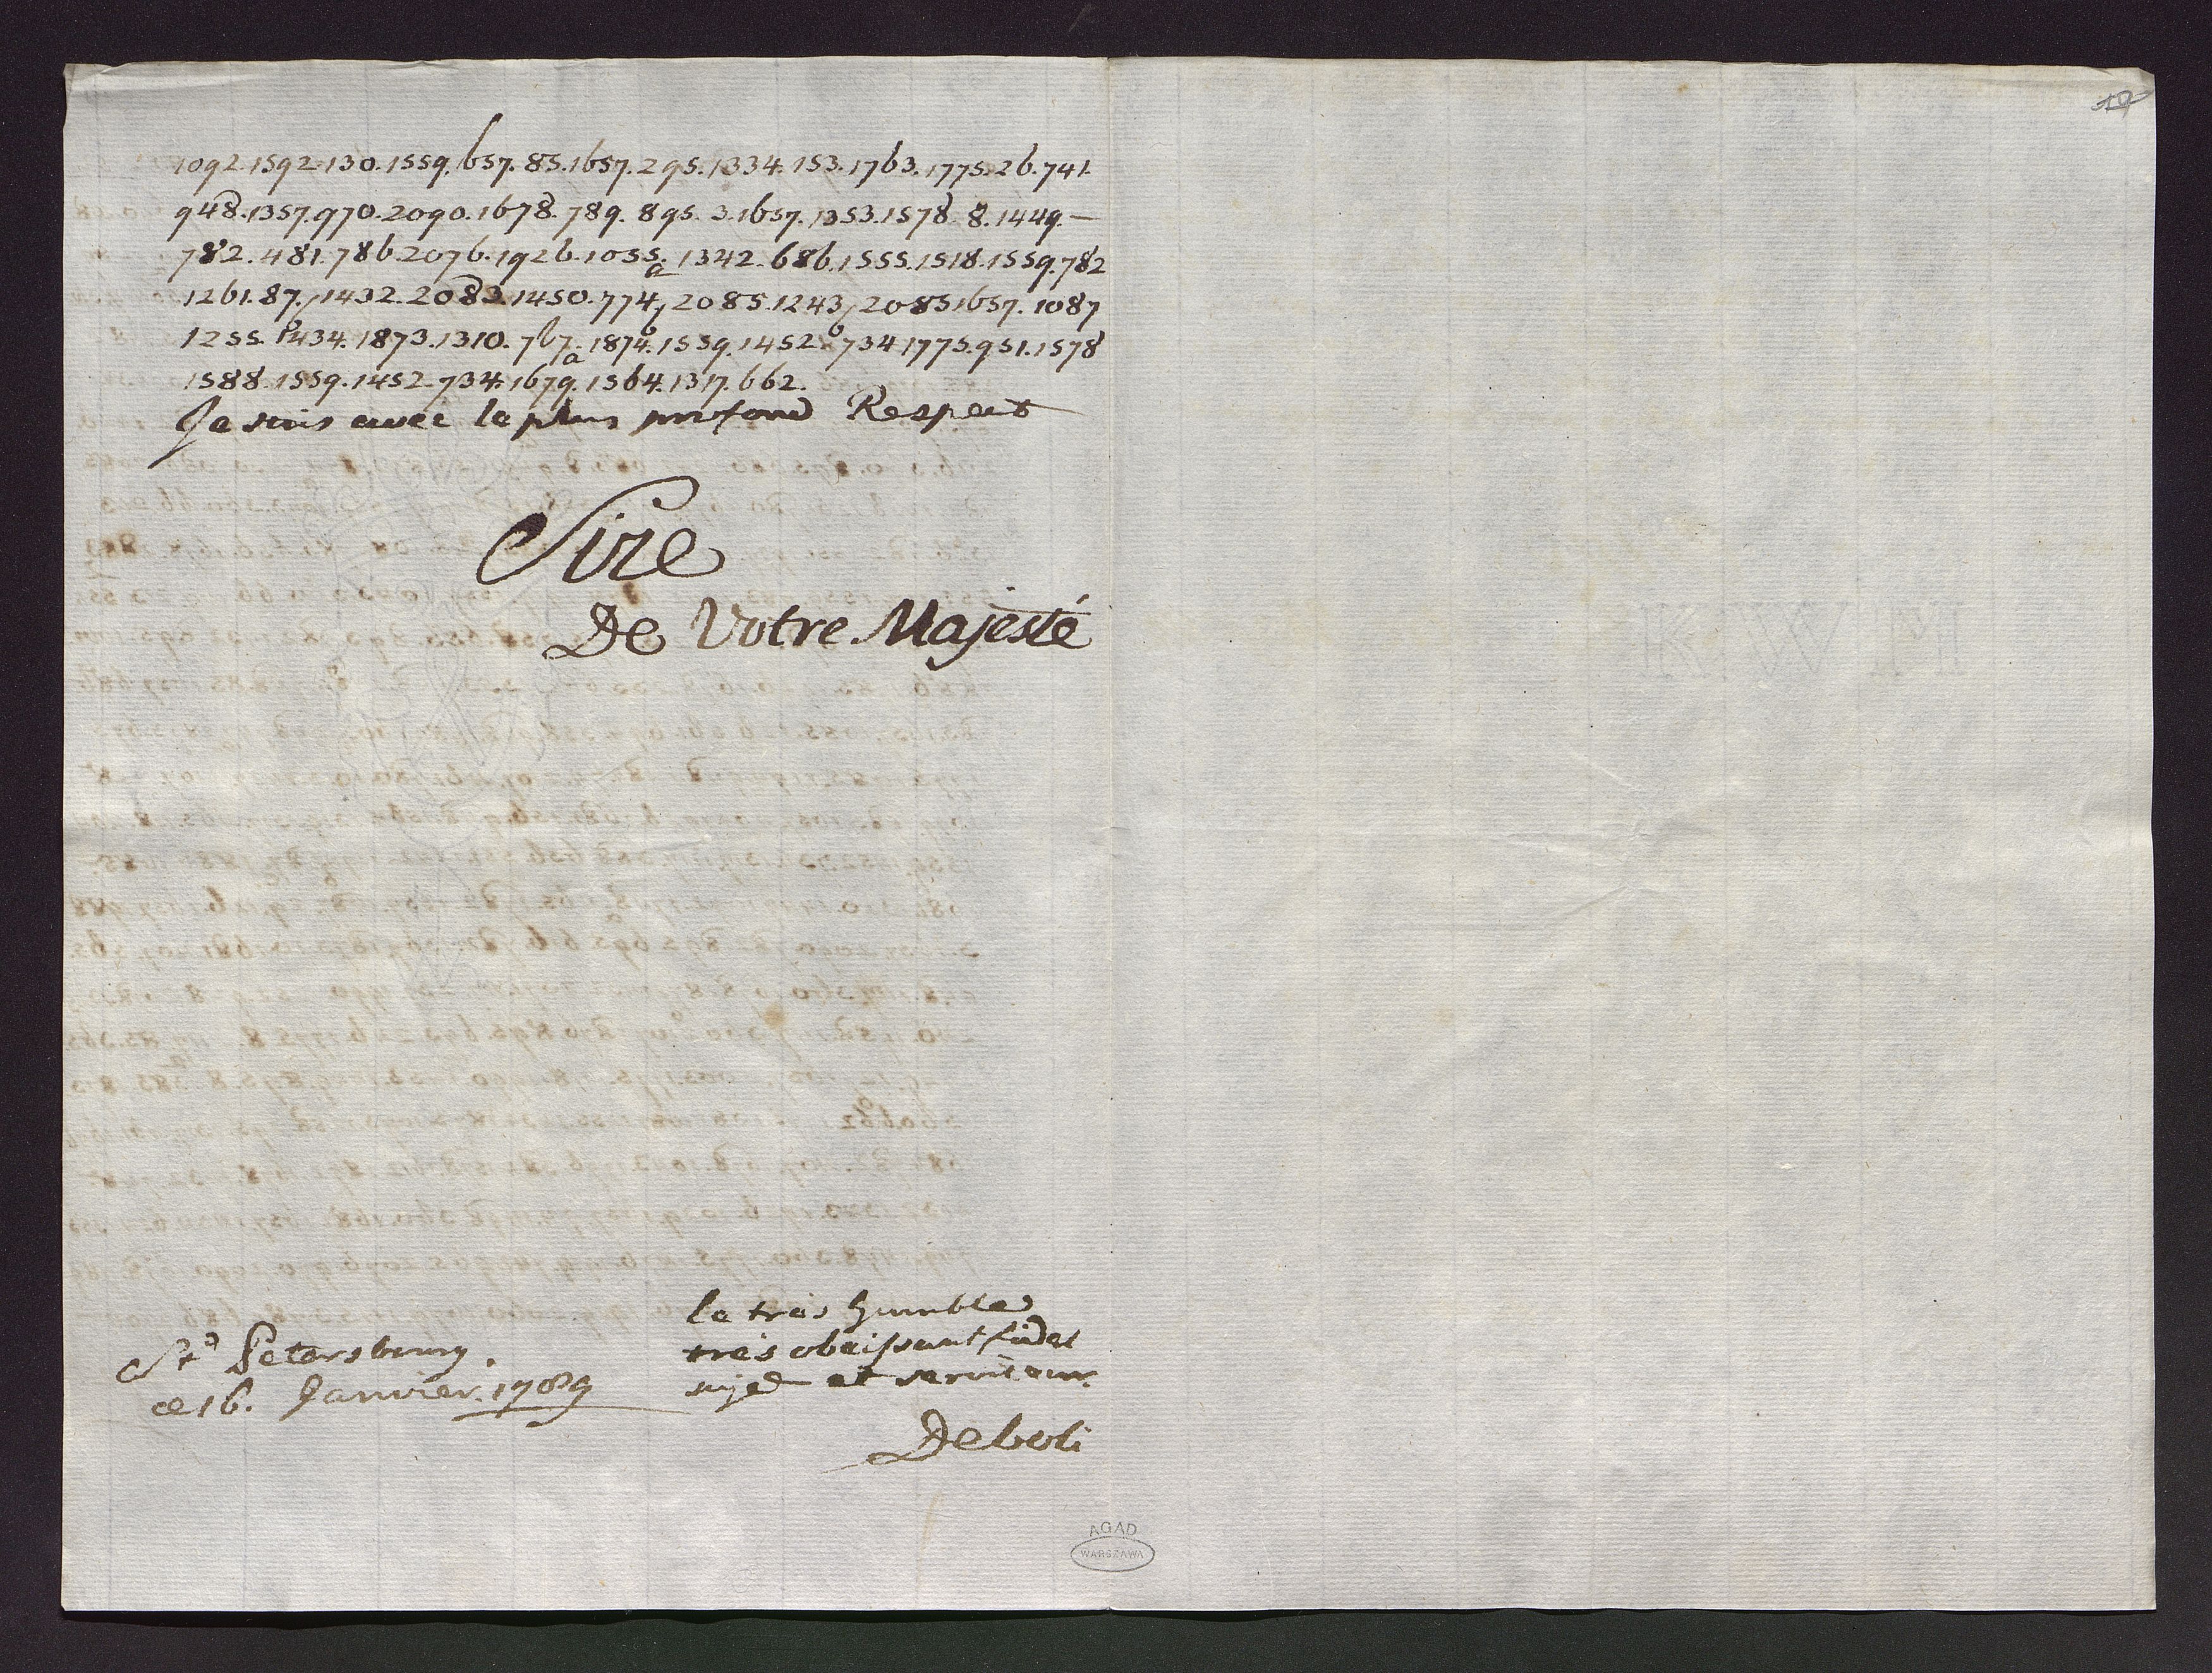 1092.1592.130.1559.657.85.1657.295.1334.153.1763.1775.26.741.
948.1357.970.2090.1678.789.895.3.1657.1353.1578.8.1449.—
782.481.786.2076.1926.1055.1342.686.1555.1518.1559.782
1261.87./1432.2083.1450.774/2085.1243/2085.1657.1087
1255.1434.1873.1310.767.1874.1559.1452.734.1775.951.1578
1588.1559.1452.734.1679.1564.1317.662.
Je suis avec le plus profond Respect
Sire
De Votre Majesté
le très humble
très obeissant fidel
sujet et serviteur
Deboli
St Petersbourg
ce 16. Janvier. 1789
AGAD
WARSZAWA